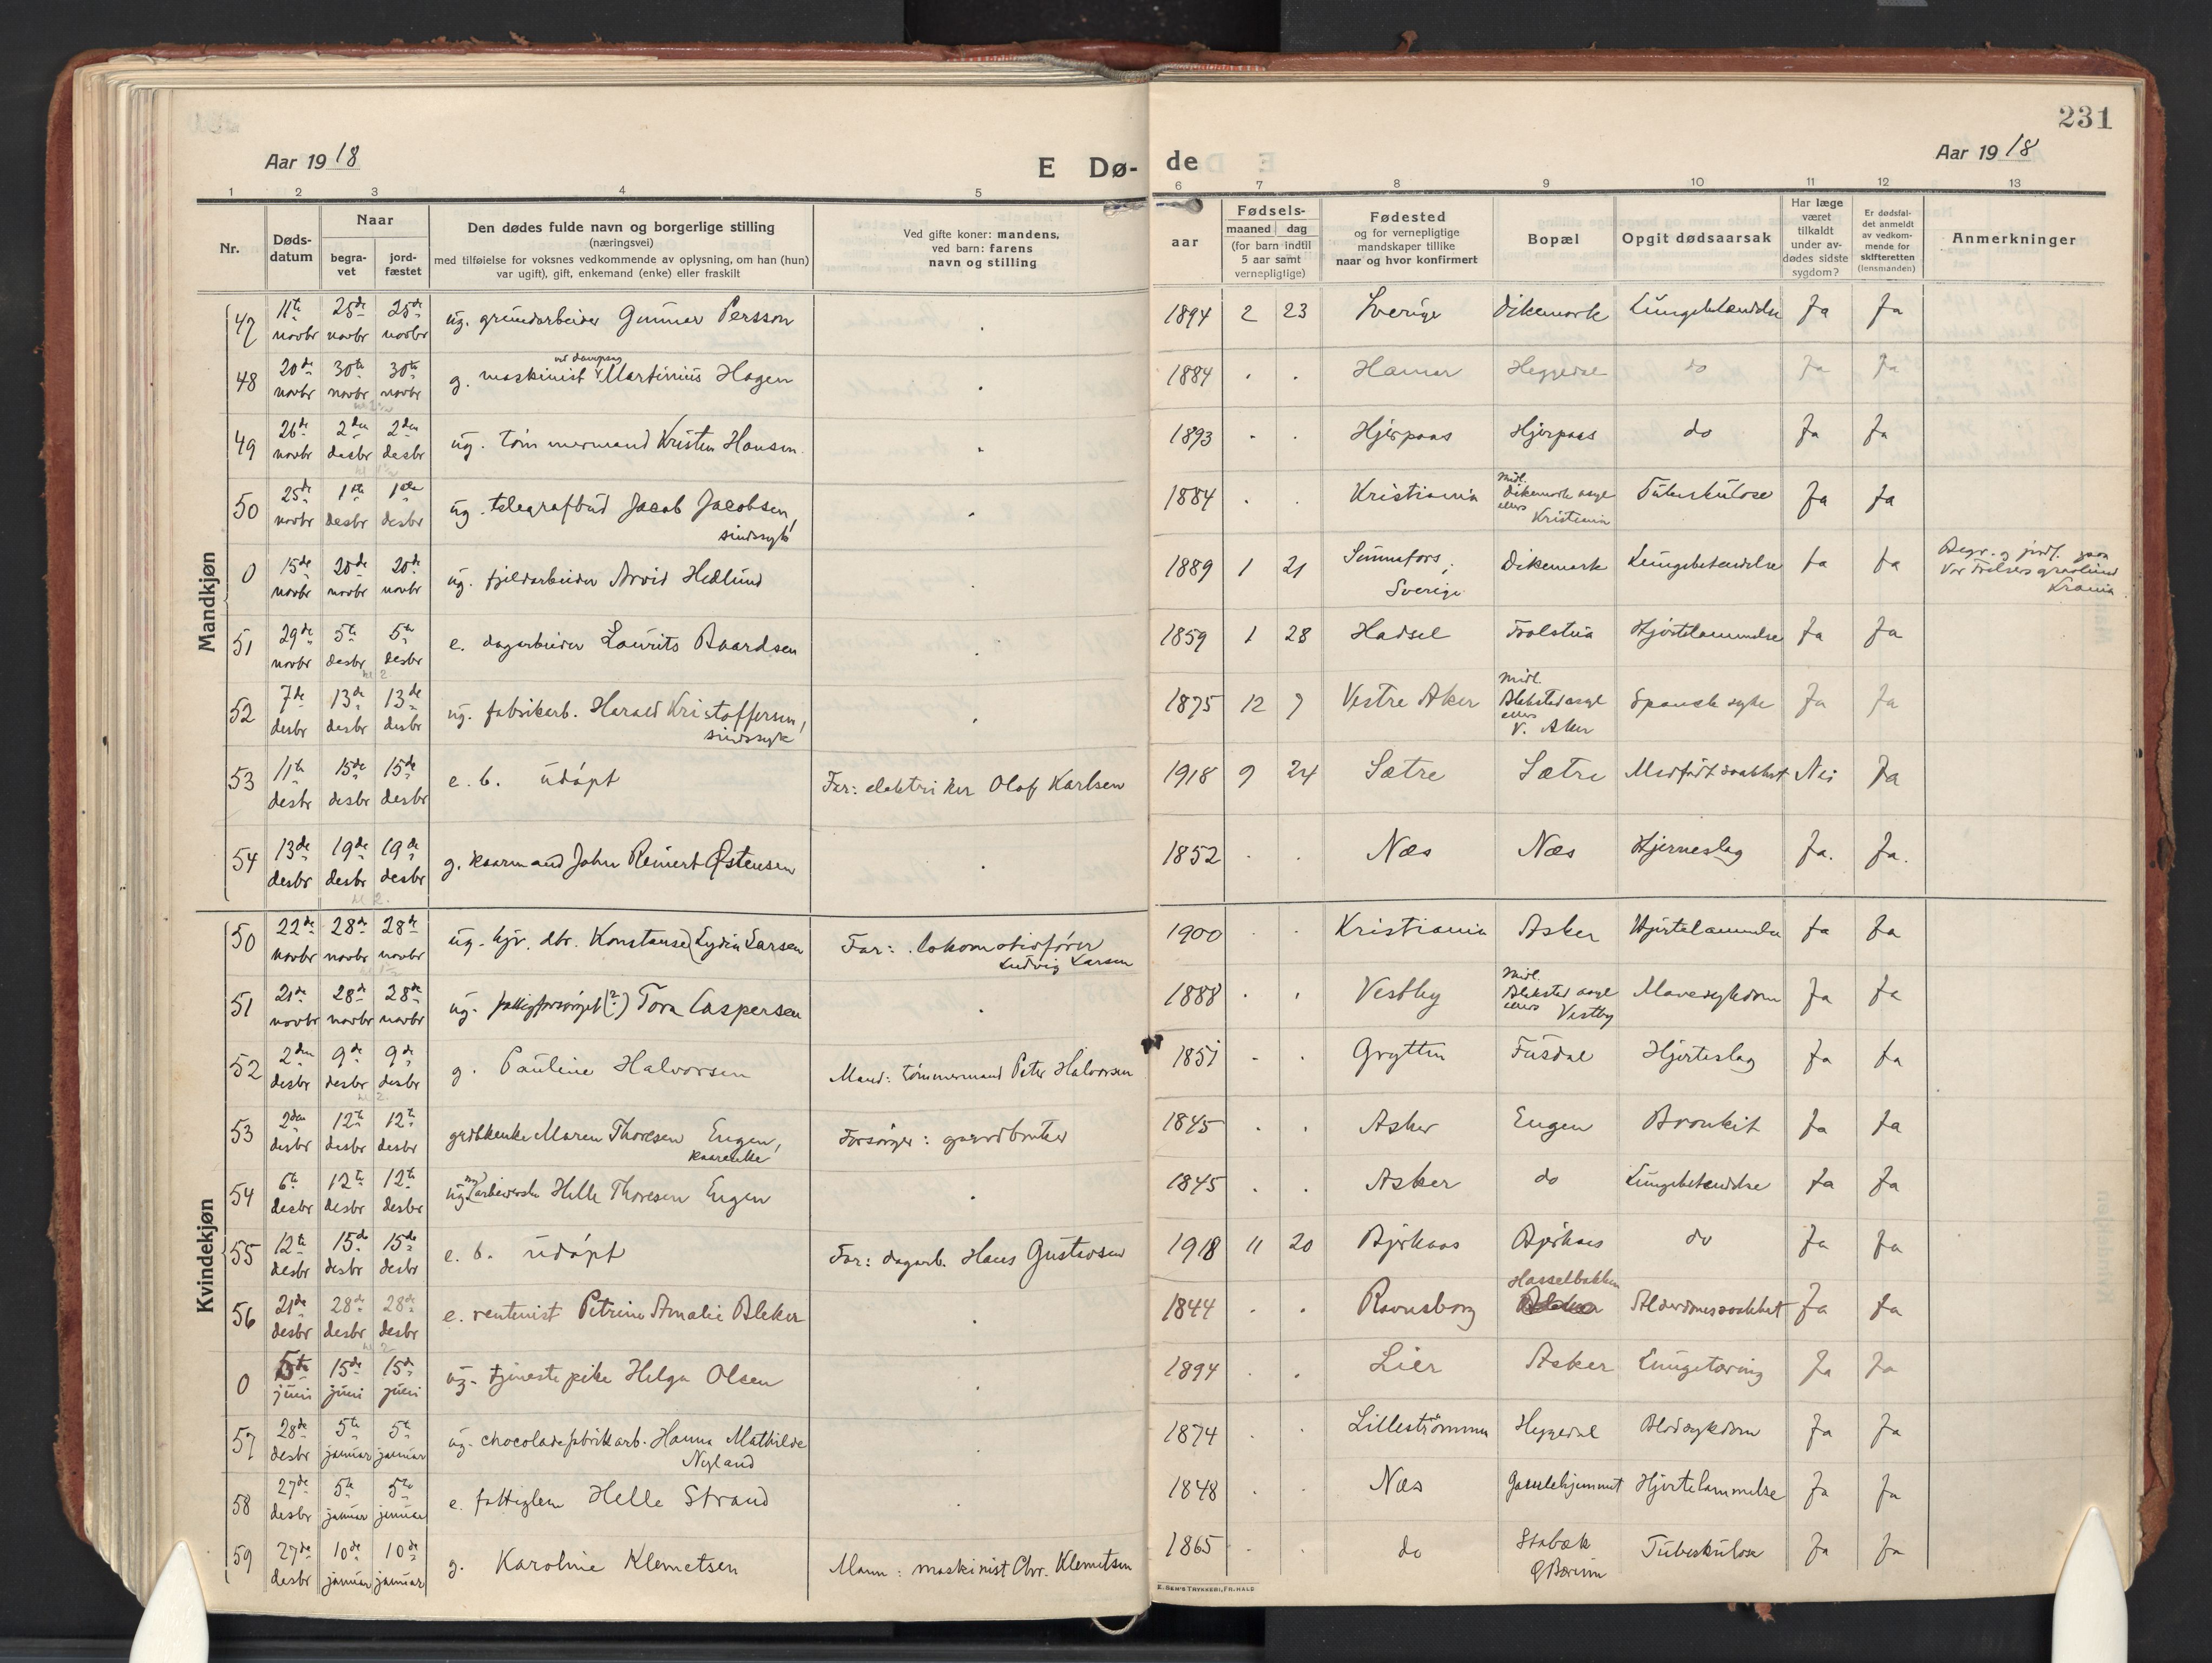 231
Aar 1918
E Dø-
de
Aar 1918
1 2 3 4 5 6 7 8 9 10 11 12 13
Nr.
Døds-
datum
Naar
begra-
vet
jord-
fæstet
Den dødes fulde navn og borgerlige stilling
(næringsvei)
med tilføielse for voksnes vedkommende av oplysning, om han (hun)
var ugift), gift, enkemand (enke) eller fraskilt
Ved gifte koner: mandens,
ved barn: farens
navn og stilling
aar
Fødsels-
maaned dag
(for barn indtil
5 aar samt
vernepligtige)
Fødested
og for vernepligtige
mandskaper tillike
naar og hvor konfirmert
Bopæl
Opgit dødsaarsak
Har læge
været
tilkaldt
under av-
dødes sidste
sygdom?
Er dødsfal-
det anmeldt
av vedkom-
mende for
skifteretten
(lensmanden)
Anmerkninger
Mandkjøn
47 11te novbr 25de novbr 25de novbr ug. grundarbeider Gunnar Persson 1894 2 23 Sverige Dikemark Lungebetændelse Ja Ja
48 20de novbr 30te novbr 30te novbr g. maskinist ved dampsag Martinius Hagen 1884 Hamar Heggedal do Ja Ja
49 26de novbr 2den desbr 2den desbr ug. tømmermand Kristen Hansen 1893 Hjerpaas Hjerpaas do Ja Ja
50 25de novbr 1ste desbr 1ste desbr ug. telegrafbud Jacob Jacobsen, sindssyk 1884 Kristiania Midl. Dikemark asyl ellers Kristiania Tuberkulose Ja Ja
0 15de novbr 20de novbr 20de novbr ug. fjeldarbeider Arvid Hedlund 1889 1 21 Sunnefors, Sverige Dikemark Lungebetændelse Ja Ja Begr. og jordf. paa Vor Frelsers gravlund Krania.
51 29de novbr 5te desbr 5te desbr e. dagarbeider Laurits Baardsen 1859 1 28 Hadsel Solstua Hjertelammelse Ja Ja
52 7de desbr 13de desbr 13de desbr ug. fabrikarb. Harald Kristoffersen, sindssyk 1875 12 7 Vestre Aker Midl. Blakstad asyl ellers V. Aker Spansk syke Ja Ja
53 11te desbr 15de desbr 15de desbr e. b. udøpt Far: elektriker Olaf Karlsen 1918 9 24 Sætre Sætre Medfødt svakhet Nei Ja
54 13de desbr 19de desbr 19de desbr g. kaarmand John Reinert Østensen 1852 Næs Næs Hjerneslag Ja. Ja.
Kvindekjøn
50 22de novbr 28de novbr 28de novbr ug. hjv. dtr. Konstanse Lydia Larsen Far: lokomotivfører Ludvig Larsen 1900 Kristiania Asker Hjertelammelse Ja Ja
51 21de novbr 28de novbr 28de novbr ug. fattigforsørget (?) Tora Caspersen 1888 Vestby Midl. Blakstad asyl ellers Vestby Mavesykdom Ja Ja
52 2den desbr 9de desbr 9de desbr g. Pauline Halvorsen Mand: tømmermand Peter Halvorsen 1851 Grytten Fusdal Hjerteslag Ja Ja
53 2den desbr 12te desbr 12te desbr grdbkenke Maren Thoresen Engen, kaarenke Forsørger: gaardbruker 1845 Asker Engen Bronkit Ja Ja
54 6te desbr 12te desbr 12te desbr ug. arbeiderske Helle Thoresen Engen 1845 Asker do Lungebetændelse Ja Ja
55 12te desbr 15de desbr 15de desbr e. b. udøpt Far: dagarb. Hans Gustavsen 1918 11 20 Bjerkaas Bjerkaas do Ja Ja
56 21de desbr 28de desbr 28de desbr e. rentenist Petrine Amalie Bleker 1844 Ravnsborg Hasselbakken Alderdomssvakhet Ja Ja
0 5te juni 15de juni 15de juni ug. tjenestepike Helga Olsen 1894 Lier Asker Lungetæring Ja Ja
57 28de desbr 5te januar 5te januar ug. chocoladefabrikarb. Hanna Mathilde Nyland 1874 Lillestrømmen Heggedal Blodsykdom Ja Ja
58 27de desbr 5te januar 5te januar e. fattiglem Helle Strand 1848 Næs Gamlehjemmet Hjertelammelse Ja Ja
59 27de desbr 10de januar 10de januar g. Karoline Klemetsen Mann: maskinist Chr. Klemetsen 1865 do Stabæk Ø Bærum Tuberkulose Ja Ja
E. SEM'S TRYKKERI, FR.HALD